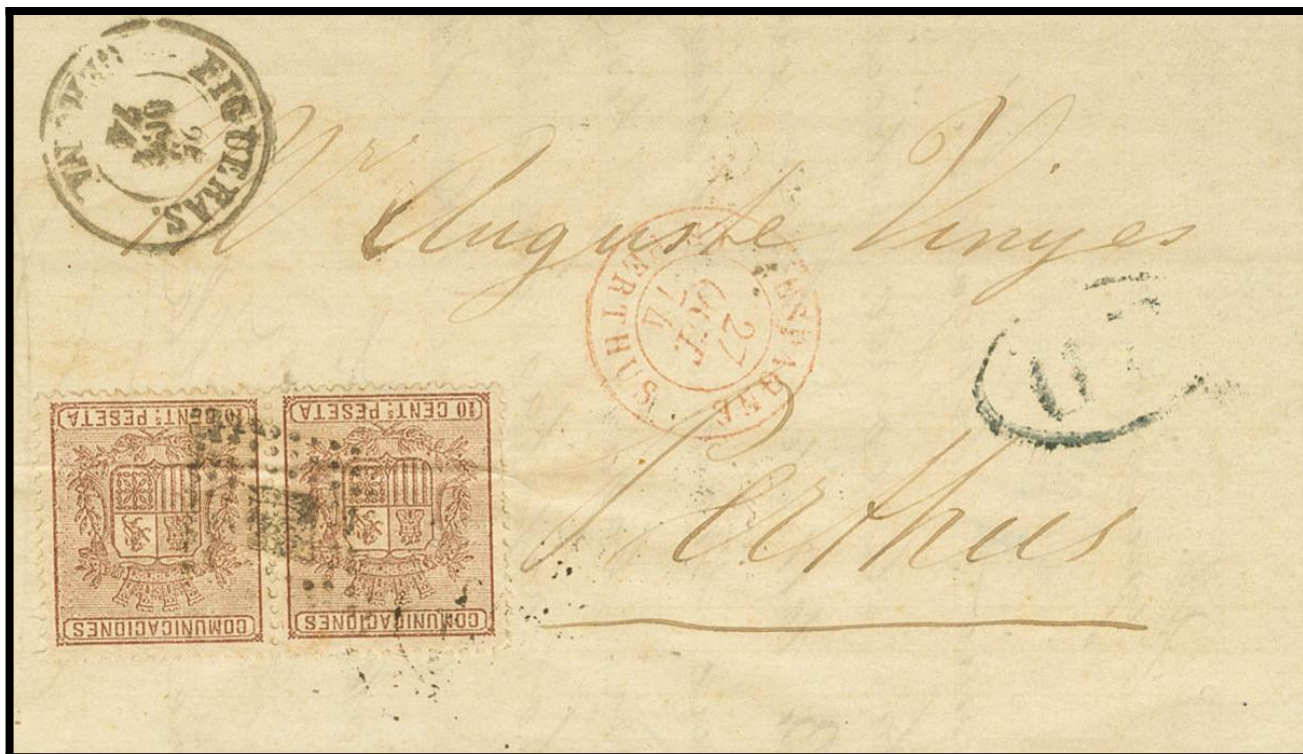 FIGUERAS.
OCT
74
Mr Auguste Vinyes
ESPAGNE
27
OCT.
74
ERTHUS
Perthus
10 CENTs PESETA
COMUNICACIONES
10 CENTs PESETA
COMUNICACIONES